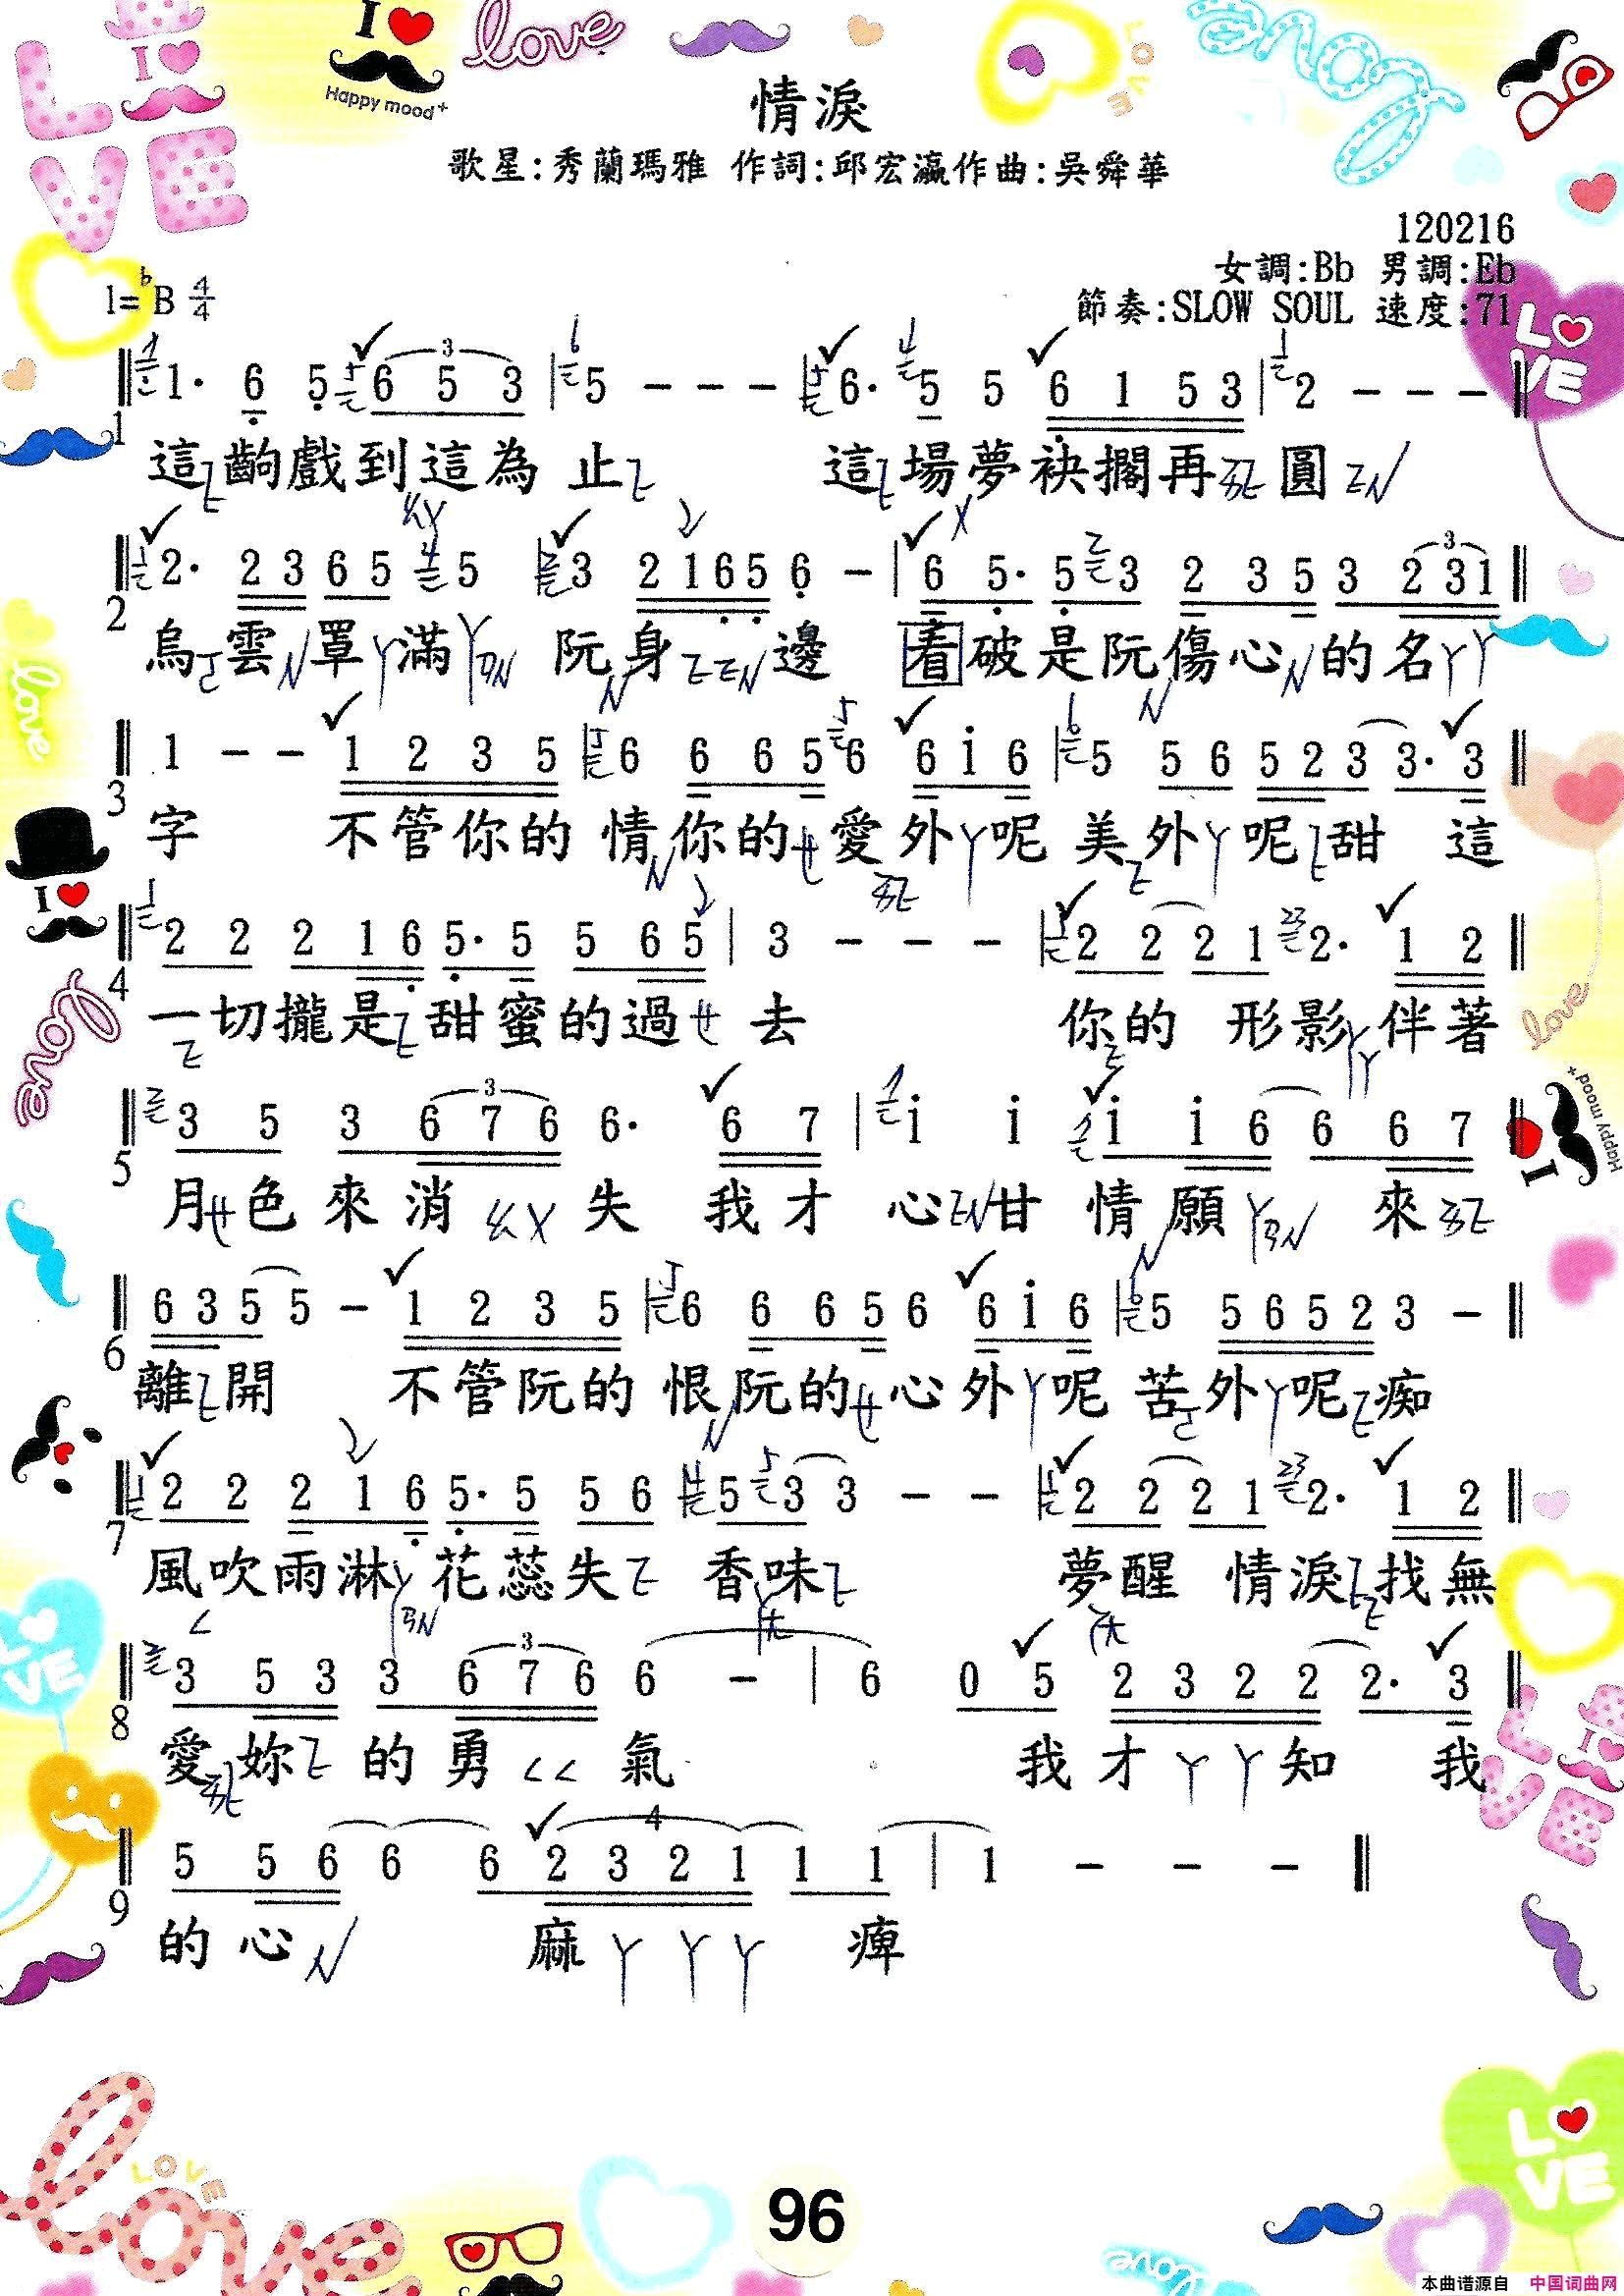 情淚
歌星:秀蘭瑪雅 作詞:邱宏瀛作曲:吳舜華
120216
女調:Bb 男調:Eb
節奏:SLOW SOUL 速度:71
1=♭B 4/4
1· 6 5 6 5 3 | 5 - - - | 6· 5 5 6 1 5 3 | 2 - - -
1
這齣戲到這為止 這場夢袂擱再圓
2· 2 3 6 5 5 3 2 1 6 5 6 - | 6 5· 5 3 2 3 5 3 2 3 1
2
烏雲罩滿 阮身邊 看破是阮傷心的名
1 - - 1 2 3 5 | 6 6 6 5 6 6 i 6 | 5 5 6 5 2 3 3· 3
3
字 不管你的情你的愛外呢美外呢甜 這
2 2 2 1 6 5· 5 5 6 5 | 3 - - - | 2 2 2 1 2· 1 2
4
一切攏是甜蜜的過去 你的 形影伴著
3 5 3 6 7 6 6· 6 7 | i i i i 6 6 6 7
5
月色來消失 我才心甘情願 來
6 3 5 5 - 1 2 3 5 | 6 6 6 5 6 6 i 6 | 5 5 6 5 2 3 -
6
離開 不管阮的恨阮的心外呢苦外呢痴
2 2 2 1 6 5· 5 5 6 | 5 3 3 - - | 2 2 2 1 2· 1 2
7
風吹雨淋花蕊失 香味 夢醒 情淚找無
3 5 3 3 6 7 6 6 - | 6 0 5 2 3 2 2 2· 3
8
愛妳的勇氣 我才知 我
5 5 6 6 6 2 3 2 1 1 1 | 1 - - -
9
的心 麻 痺
96
I
Happy mood+
love
LOVE
LOVE
Love
LOVE
love
love
LOVE
love
Happy mood+
I
LOVE
LOVE
LOVE
love
LOVE
love
本曲谱源自 中国词曲网